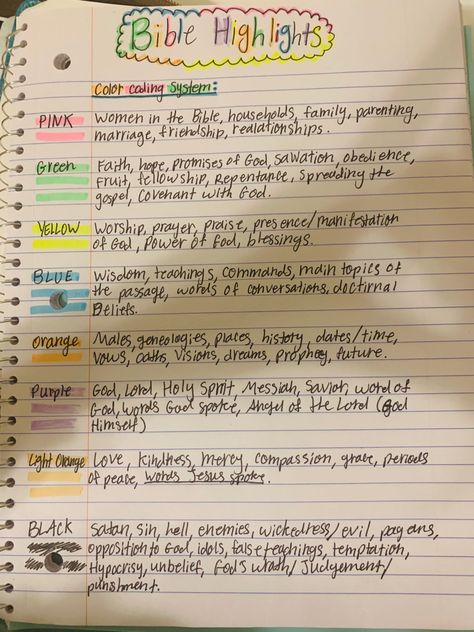 Bible Highlights
Color Coding System:
PINK Women in the Bible, households, family, parenting,
marriage, friendship, realationships.
Green Faith, hope, promises of God, salvation, obedience,
Fruit, fellowship, Repentance, spreading the
gospel, Covenant with God.
YELLOW Worship, prayer, praise, presence/manifestation
of God, Power of God, blessings.
BLUE Wisdom, teachings, commands, main topics of
the passage, words of conversations, doctirnal
Beliefs.
orange Males, geneologies, places, history, dates/time,
vows, oaths, visions, dreams, prophecy, future.
Purple God, Lord, Holy Spirit, Messiah, Savior, word of
God, words God spoke, Angel of the Lord (God
Himself)
Light Orange Love, kindness, mercy, compassion, grace, periods
of peace, words Jesus spoke.
BLACK Satan, Sin, hell, enemies, wickedness/evil, pagans,
opposition to God, idols, false teachings, temptation,
Hypocrisy, unbelief, God's wrath/Judgement/
punishment.